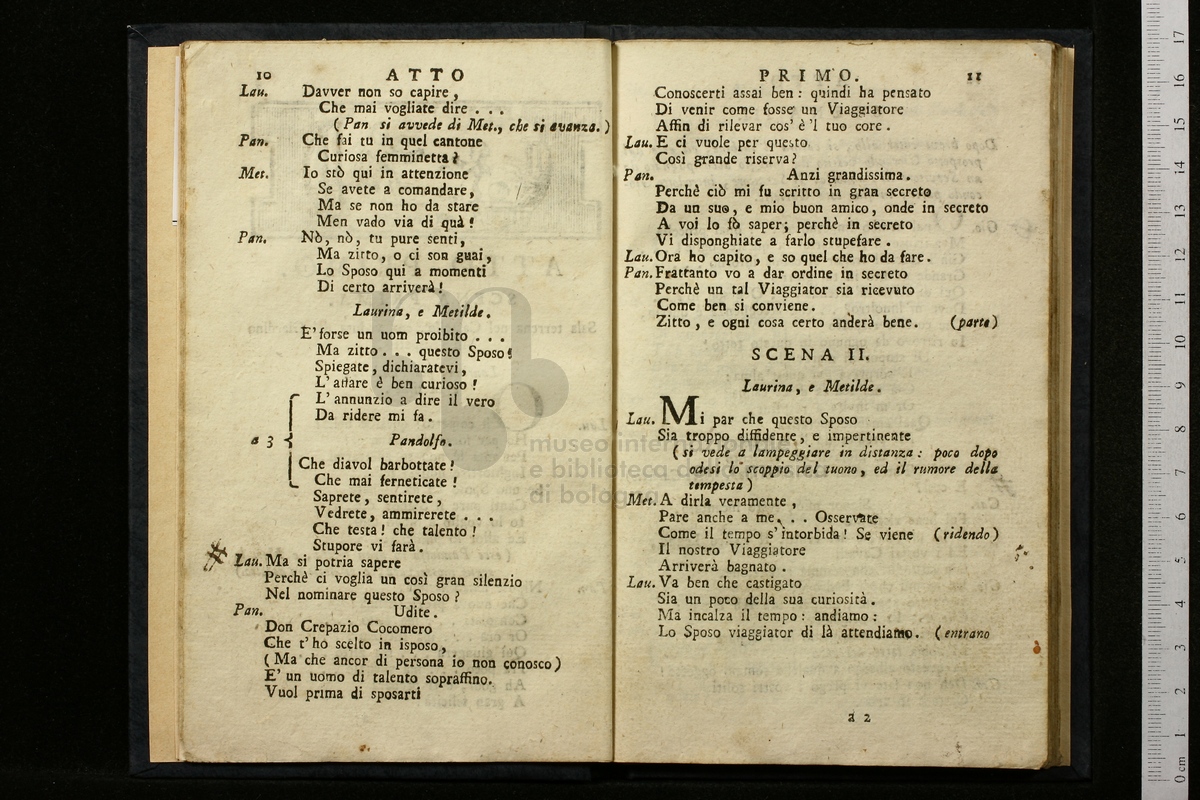 10 ATTO
Lau. Davver non so capire,
Che mai vogliate dire . . .
( Pan si avvede di Met., che si avanza. )
Pan. Che fai tu in quel cantone
Curiosa femminetta?
Met. Io stò qui in attenzione
Se avete a comandare,
Ma se non ho da stare
Men vado via di quà!
Pan. Nò, nò, tu pure senti,
Ma zitto, o ci son guai,
Lo Sposo qui a momenti
Di certo arriverà!
Laurina, e Metilde.
E' forse un uom proibito . . .
Ma zitto . . . questo Sposo!
Spiegate, dichiaratevi,
L' affare è ben curioso!
L' annunzio a dire il vero
Da ridere mi fa.
a 3 Pandolfo.
Che diavol barbottate!
Che mai ferneticate!
Saprete, sentirete,
Vedrete, ammirerete . . .
Che testa! che talento!
Stupore vi farà.
Lau. Ma si potria sapere
Perchè ci voglia un così gran silenzio
Nel nominare questo Sposo?
Pan. Udite.
Don Crepazio Cocomero
Che t' ho scelto in isposo,
( Ma che ancor di persona io non conosco )
E' un uomo di talento sopraffino.
Vuol prima di sposarti
PRIMO. 11
Conoscerti assai ben: quindi ha pensato
Di venir come fosse un Viaggiatore
Affin di rilevar cos' è 'l tuo core.
Lau. E ci vuole per questo
Così grande riserva?
Pan. Anzi grandissima.
Perchè ciò mi fu scritto in gran secreto
Da un suo, e mio buon amico, onde in secreto
A voi lo fò saper; perchè in secreto
Vi disponghiate a farlo stupefare.
Lau. Ora ho capito, e so quel che ho da fare.
Pan. Frattanto vo a dar ordine in secreto
Perchè un tal Viaggiator sia ricevuto
Come ben si conviene.
Zitto, e ogni cosa certo anderà bene. (parte)
SCENA II.
Laurina, e Metilde.
Lau. Mi par che questo Sposo
Sia troppo diffidente, e impertinente
( si vede a lampeggiare in distanza: poco dopo
odesi lo scoppio del tuono, ed il rumore della
tempesta )
Met. A dirla veramente,
Pare anche a me. . . Osservate
Come il tempo s' intorbida! Se viene (ridendo)
Il nostro Viaggiatore
Arriverà bagnato.
Lau. Va ben che castigato
Sia un poco della sua curiosità.
Ma incalza il tempo: andiamo:
Lo Sposo viaggiator di là attendiamo. (entrano
a 2
museo internazionale
e biblioteca della musica
di bologna